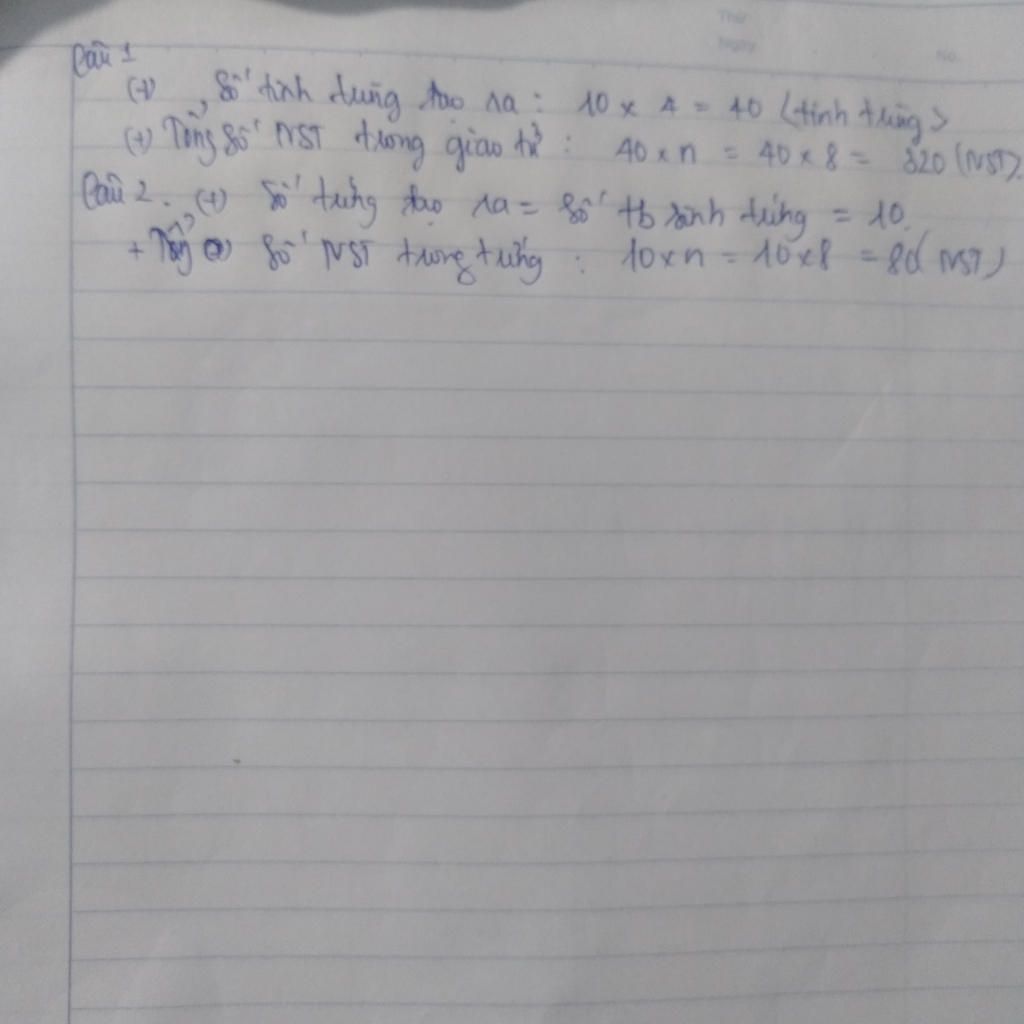 Thứ
Ngày
No.
Câu 1
(+) Số tinh trùng tạo ra : 10 x 4 = 40 (tinh trùng)
(+) Tổng số NST trong giao tử : 40 x n = 40 x 8 = 320 (NST).
Câu 2. (+) Số trứng tạo ra = số tb sinh trứng = 10.
+ Tổng số NST trong trứng : 10 x n = 10 x 8 = 80 (NST)